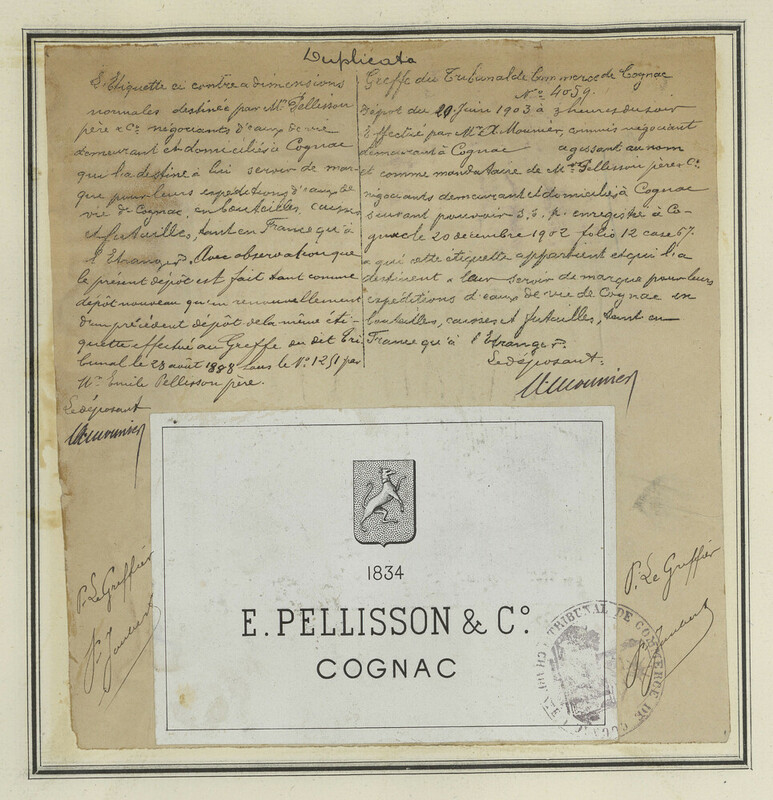 Duplicata
L'Etiquette ci contre a dimensions
normales destinée par Mrs Pellisson
père & Co négociants d'eaux de vie
demeurant et domiciliés à Cognac
qui l'a destiné à lui servir de mar-
que pour leurs expéditions d'eaux de
vie de Cognac, en bouteilles, caisses
et futailles, tant en France qu'à
l'Etranger. Avec observation que
le présent dépôt est fait tant comme
dépôt nouveau qu'en renouvellement
d'un précédent dépôt de la même éti-
quette effectué au Greffe du dit Tri
bunal le 28 août 1888 sous le No 1251 par
Mr Emile Pellisson père.
Le déposant
Greffe du Tribunal de Commerce de Cognac
No 4059.
Dépôt du 20 Juin 1903 à 3 heures du soir
Effectué par Mr A. Mounier, commis négociant
demeurant à Cognac agissant au nom
et comme mandataire de Mrs Pellisson père & Co
négociants demeurant et domiciliés à Cognac
suivant pouvoir s.s.p. enregistré à Co-
gnac le 20 décembre 1902 folio 12 case 67.
à qui cette étiquette appartient et qui l'a
destinent à leur servir de marque pour leurs
expéditions d'eaux de vie de Cognac en
bouteilles, caisses et futailles, tant en
France qu'à l'Etranger.
Le déposant.
A. Mounier
P. Le Greffier
1834
E. PELLISSON & Co.
COGNAC
P. Le Greffier
TRIBUNAL DE COMMERCE DE